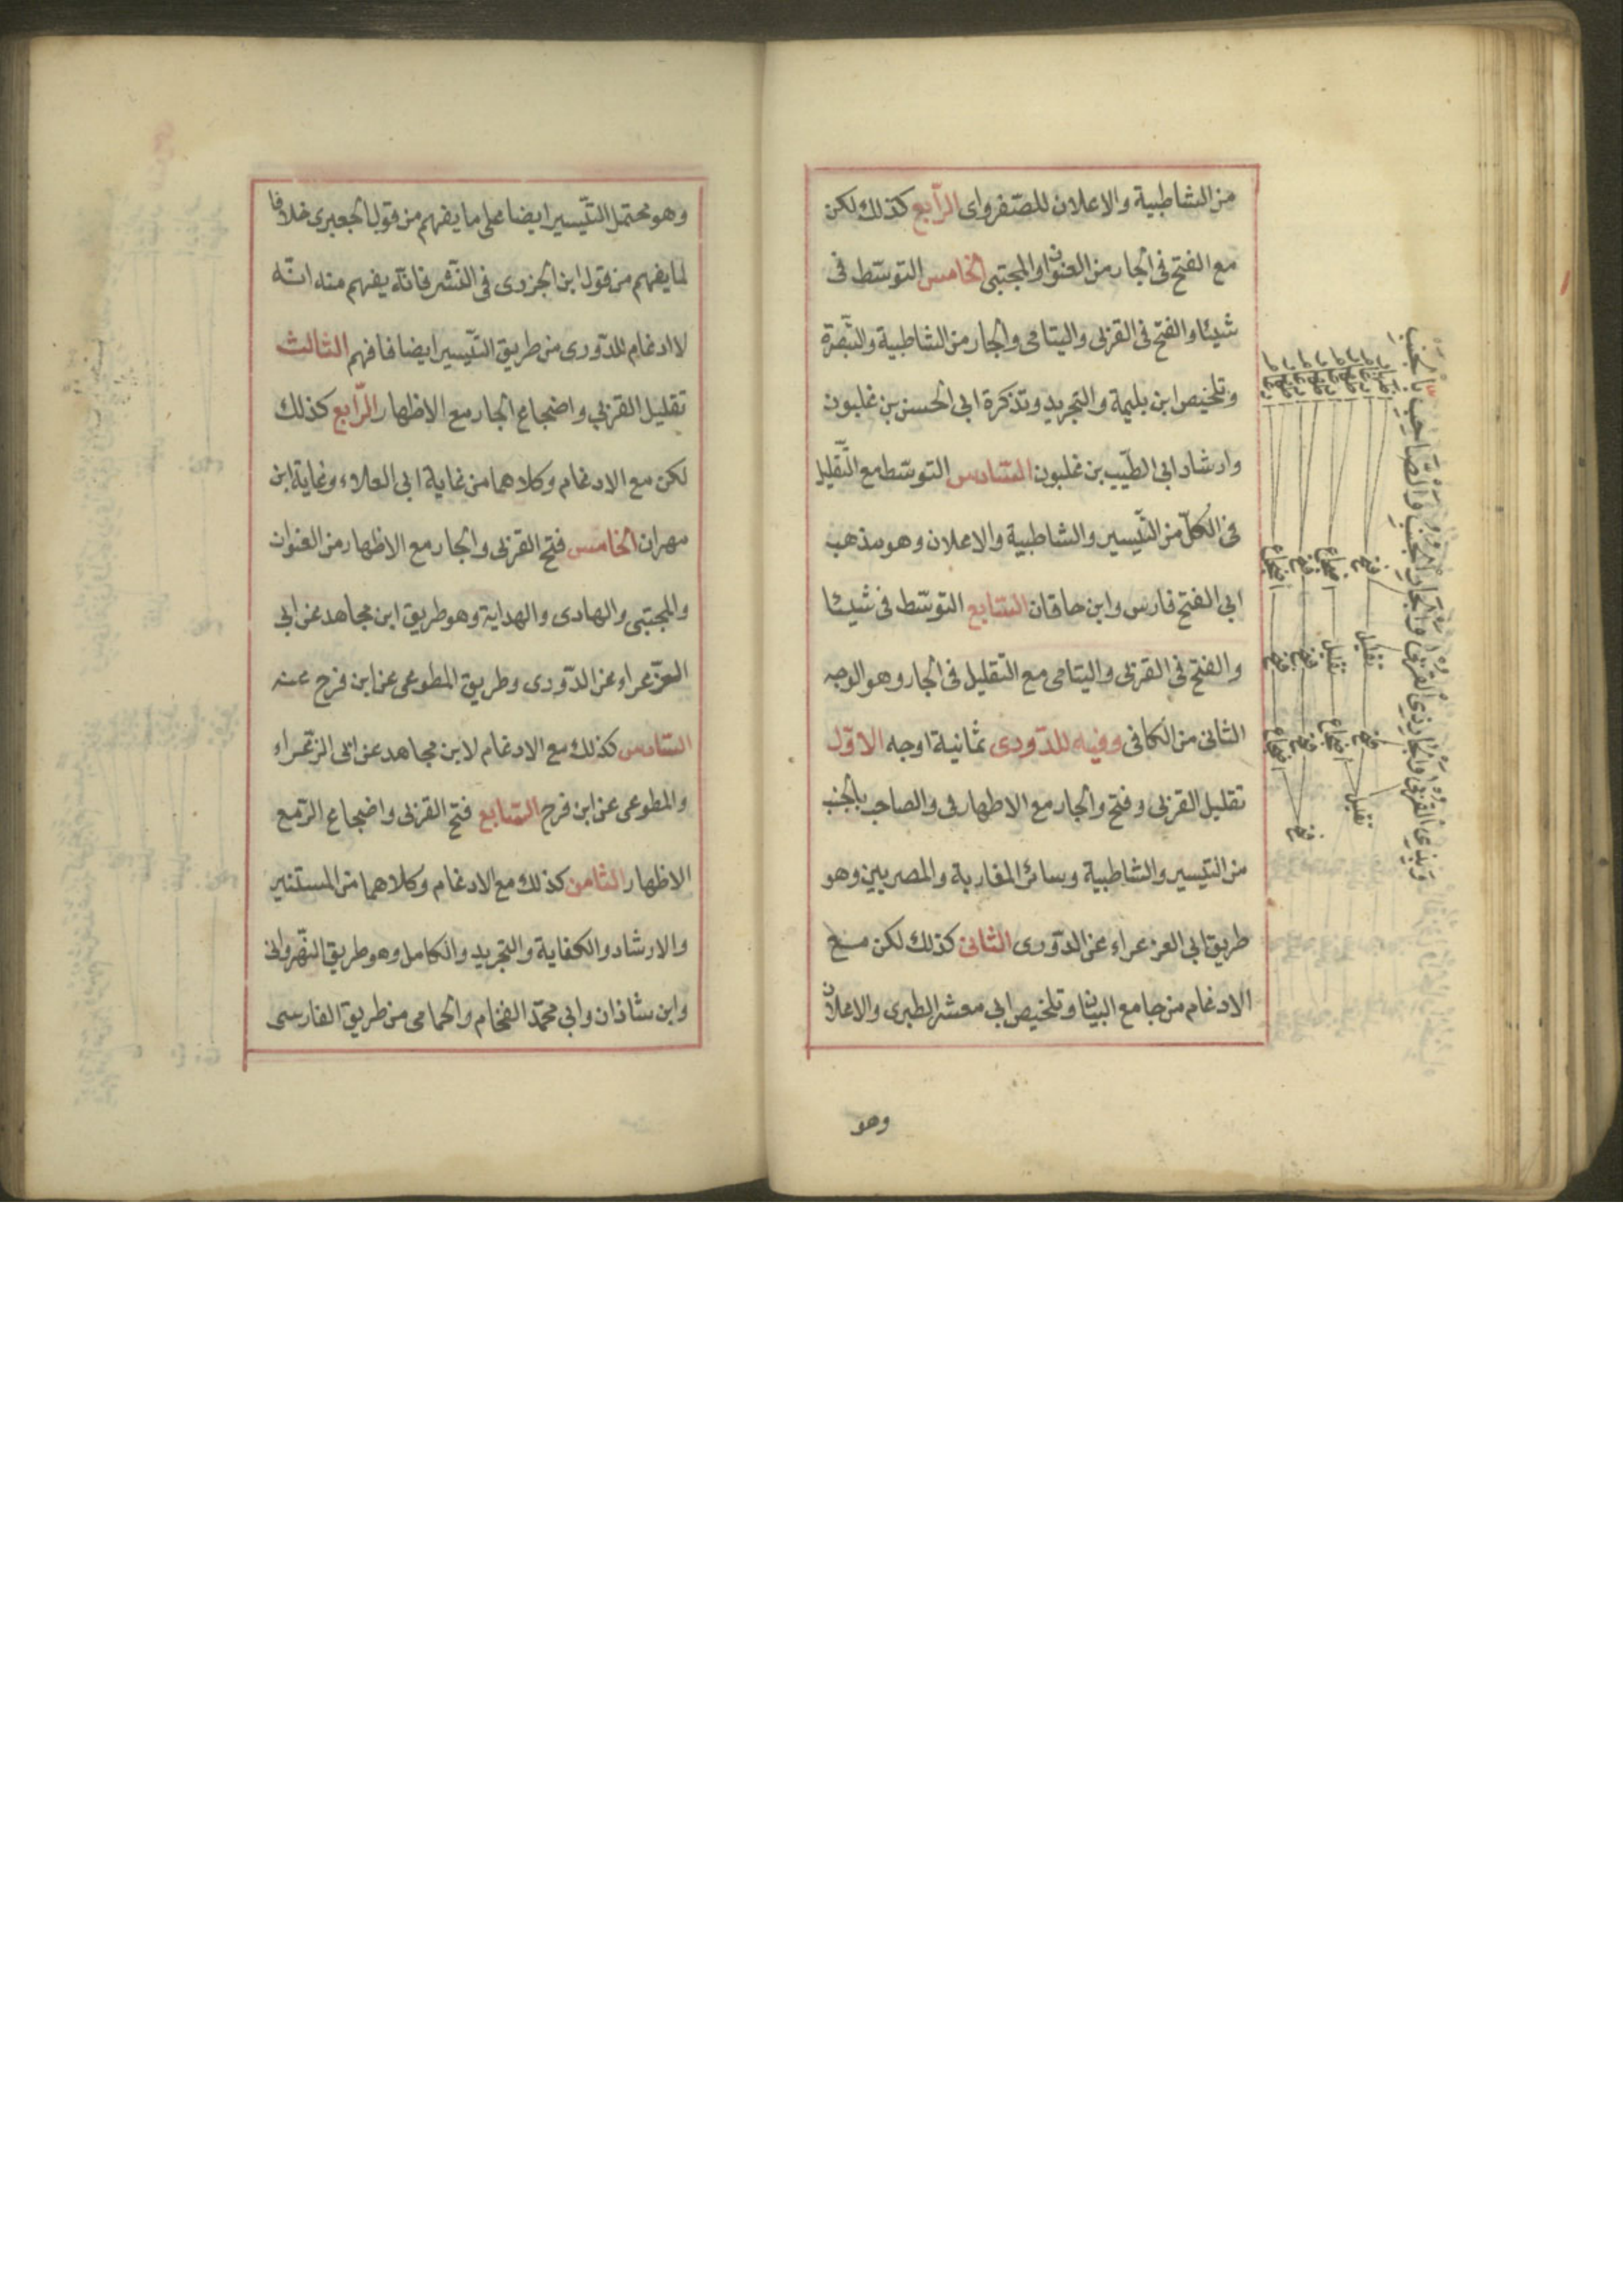 من الشاطبية والاعلان للصفراوى الرّابع كذلك لكن
مع الفتح فى الجار من العنوان والمجتبى الخامس التوسّط فى
شيئا والفتح فى القربى واليتامى والجار من الشاطبية والتّبصرة
وتلخيص ابن بليمة والتجريد وتذكرة ابى الحسن بن غلبون
وارشاد ابى الطّيب بن غلبون السّادس التوسّط مع التّقليل
فى الكلّ من التّيسير والشاطبية والاعلان وهو مذهب
ابى الفتح فارس وابن خاقان السّابع التوسّط فى شيئا
والفتح فى القربى واليتامى مع التّقليل فى الجار وهو الوجه
الثانى من الكافى وفيه للدّورى ثمانية اوجه الاوّل
تقليل القربى وفتح والجار مع الاظهار فى والصاحب بالجنب
من التيسير والشاطبية وسائر المغاربة والمصريين وهو
طريق ابى الزعراء عن الدّورى الثانى كذلك لكن مع
الادغام من جامع البيان وتلخيص ابى معشر الطبرى والاعلان
وهو
وهو محتمل التّيسير ايضا على ما يفهم من قول الجعبرى خلافا
لما يفهم من قول ابن الجزرى فى النّشر فانّه يفهم منه انّه
لا ادغام للدّورى من طريق التّيسير ايضا فافهم الثالث
تقليل القربى واضجاع الجار مع الاظهار الرّابع كذلك
لكن مع الادغام وكلاهما من غاية ابى العلاء وغاية ابن
مهران الخامس فتح القربى والجار مع الاظهار من العنوان
والمجتبى والهادى والهداية وهو طريق ابن مجاهد عن ابى
الزعراء عن الدّورى وطريق المطوعى عن ابن فرح عنه
السّادس كذلك مع الادغام لابن مجاهد عن ابى الزّعراء
والمطوعى عن ابن فرح السّابع فتح القربى واضجاع الرّ مع
الاظهار الثامن كذلك مع الادغام وكلاهما من المستنير
والارشاد والكفاية والتجريد والكامل وهو طريق النّهروانى
وابن شاذان وابى محمّد الفحّام والحمامى من طريق الفارسى